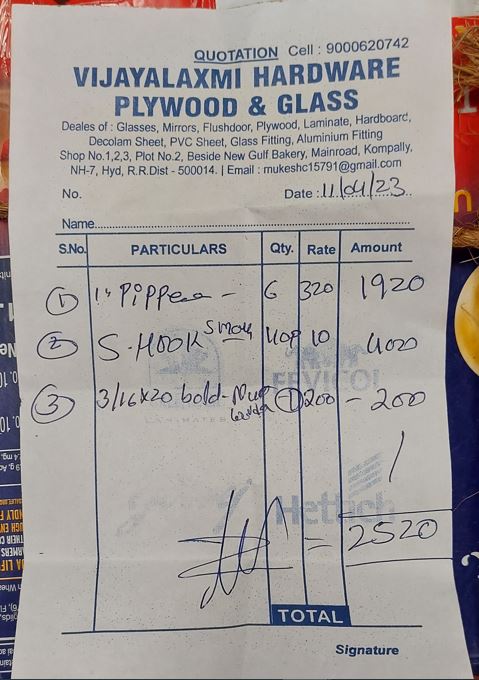 QUOTATION Cell : 9000620742
VIJAYALAXMI HARDWARE
PLYWOOD & GLASS
Deales of : Glasses, Mirrors, Flushdoor, Plywood, Laminate, Hardboard,
Decolam Sheet, PVC Sheet, Glass Fitting, Aluminium Fitting
Shop No.1,2,3, Plot No.2, Beside New Gulf Bakery, Mainroad, Kompally,
NH-7, Hyd, R.R.Dist - 500014. | Email : mukeshc15791@gmail.com
No. Date : 11/04/23
Name
S.No. PARTICULARS Qty. Rate Amount
1 1" - 6 320 1920
2 S-HOOK small 10 400
3 3/16x20 bold-Nut 1 200 - 200
FEVICOL
LAMINATES
Hettich
= 2520
TOTAL
Signature